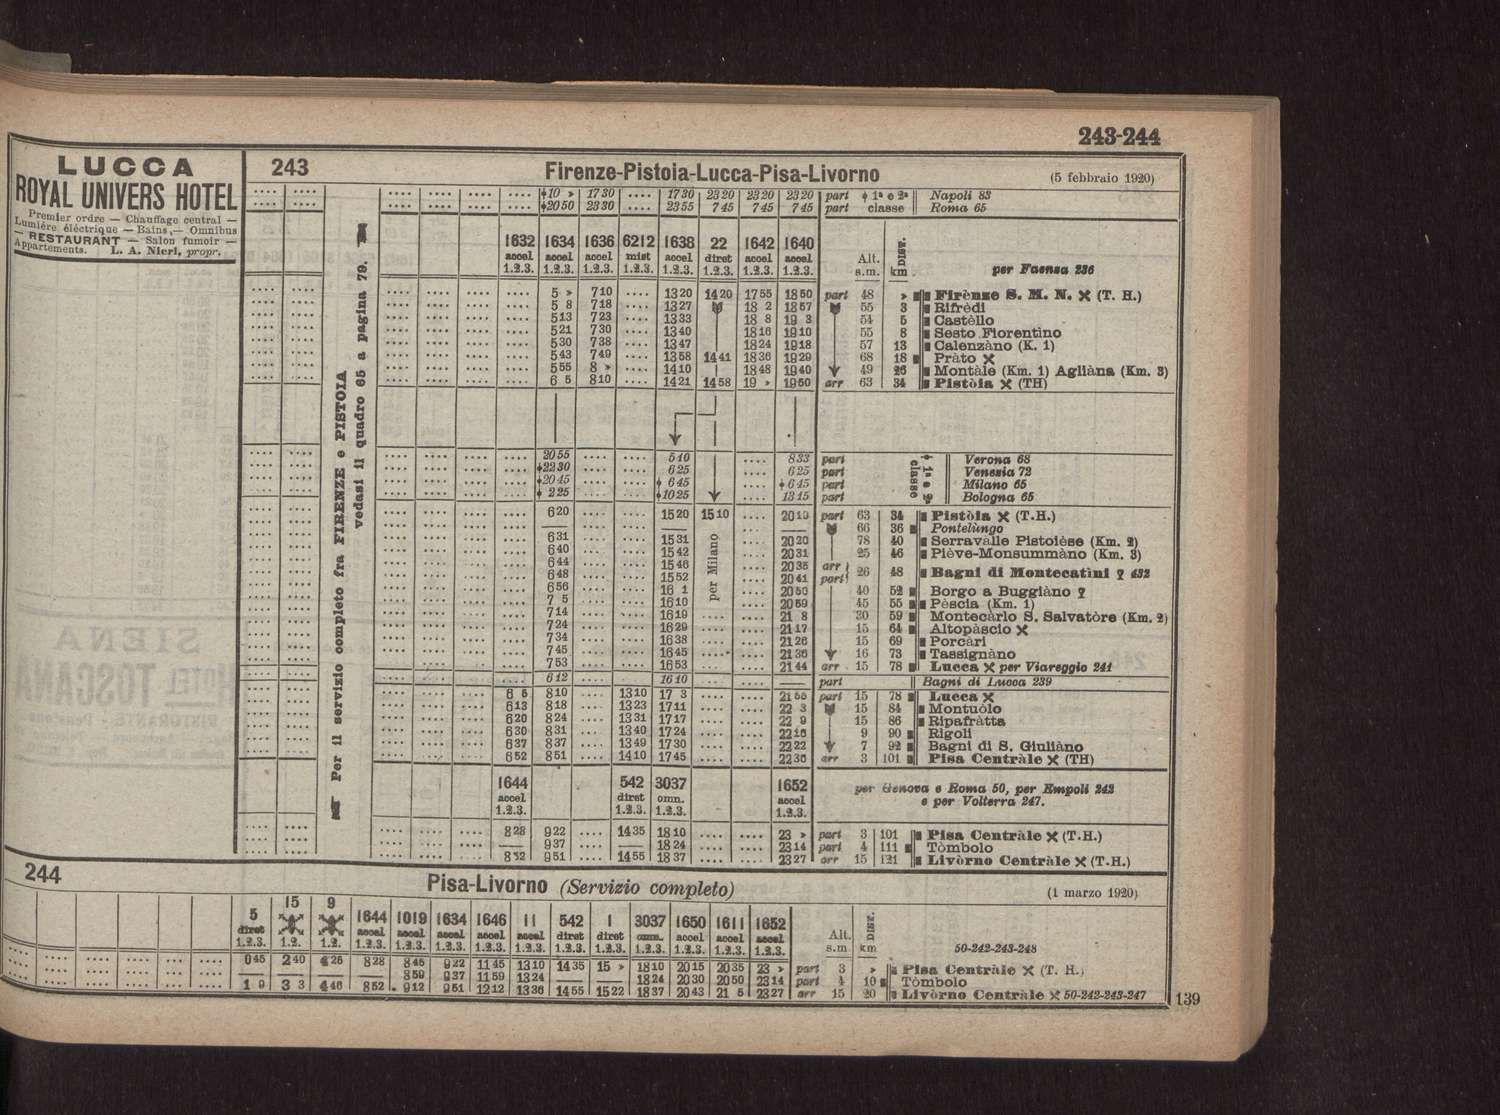 243-244
LUCCA
ROYAL UNIVERS HOTEL
Premier ordre — Chauffage central —
Lumière éléctrique — Bains,— Omnibus
— RESTAURANT — Salon fumoir —
Appartements. L. A. Nieri, propr.
243 Firenze-Pistoia-Lucca-Pisa-Livorno (5 febbraio 1920)
.... .... .... .... .... .... ϕ10 » 17 30 .... 17 30 23 20 23 20 23 20 part ϕ 1ª e 2ª Napoli 83
.... .... .... .... .... .... ϕ20 50 23 30 .... 23 55 7 45 7 45 7 45 part classe Roma 65
Per il servizio completo fra FIRENZE e PISTOIA
vedasi il quadro 65 a pagina 79.
1632 1634 1636 6212 1638 22 1642 1640
accel accel accel mist accel diret accel accel Alt. DIST.
1.2.3. 1.2.3. 1.2.3. 1.2.3. 1.2.3. 1.2.3. 1.2.3. 1.2.3. s.m. km per Faenza 236
5 » 7 10 .... 13 20 14 20 17 55 18 50 part 48 » Firènze S. M. N. (T. H.)
5 8 7 18 .... 13 27 18 2 18 57 55 3 Rifrèdi
5 13 7 23 .... 13 33 18 8 19 3 54 5 Castèllo
5 21 7 30 .... 13 40 18 16 19 10 55 8 Sesto Fiorentino
5 30 7 38 .... 13 47 18 24 19 18 57 13 Calenzàno (K. 1)
5 43 7 49 .... 13 58 14 41 18 36 19 29 68 18 Pràto
5 55 8 » .... 14 10 18 48 19 40 49 26 Montàle (Km. 1) Agliàna (Km. 3)
6 5 8 10 .... 14 21 14 58 19 » 19 50 arr 63 34 Pistòia (TH)
20 55 .... .... 5 40 .... 8 33 part ϕ 1ª e 2ª classe Verona 68
ϕ22 30 .... .... 6 25 .... 6 25 part Venezia 72
ϕ20 45 .... .... ϕ 6 45 .... ϕ 6 45 part Milano 65
ϕ 2 25 .... .... ϕ10 25 .... 13 15 part Bologna 65
6 20 .... .... 15 20 15 10 .... 20 10 part 63 34 Pistòia (T.H.)
— .... .... — .... — 66 36 Pontelùngo
6 31 .... .... 15 31 per Milano .... 20 20 78 40 Serravalle Pistoièse (Km. 2)
6 40 .... .... 15 42 .... 20 31 25 46 Piève-Monsummàno (Km. 3)
6 44 .... .... 15 46 .... 20 35 arr
6 48 .... .... 15 52 .... 20 41 part 26 48 Bagni di Montecatìni 432
6 56 .... .... 16 1 .... 20 50 40 52 Borgo a Buggiàno
7 5 .... .... 16 10 .... 20 59 45 55 Pèscia (Km. 1)
7 14 .... .... 16 19 .... .... 21 8 30 59 Montecàrlo S. Salvatòre (Km. 2)
7 24 .... .... 16 29 .... .... 21 17 15 64 Altopàscio
7 34 .... .... 16 38 .... .... 21 26 15 69 Porcàri
7 45 .... .... 16 45 .... .... 21 36 16 73 Tassignàno
7 53 .... .... 16 53 .... .... 21 44 arr 15 78 Lucca per Viareggio 241
6 12 .... .... 16 10 .... .... — part Bagni di Lucca 239
6 5 8 10 .... 13 10 17 3 .... .... 21 55 part 15 78 Lucca
6 13 8 18 .... 13 23 17 11 .... .... 22 3 15 84 Montuòlo
6 20 8 24 .... 13 31 17 17 .... .... 22 9 15 86 Ripafràtta
6 30 8 31 .... 13 40 17 24 .... .... 22 16 9 90 Rigoli
6 37 8 37 .... 13 49 17 30 .... .... 22 22 7 92 Bagni di S. Giuliàno
6 52 8 51 .... 14 10 17 45 .... .... 22 36 arr 3 101 Pisa Centràle (TH)
1644 542 3037 1652 per Genova e Roma 50, per Empoli 242
accel diret omn. accel e per Volterra 247.
1.2.3. 1.2.3. 1.2.3. 1.2.3.
8 28 9 22 .... 14 35 18 10 .... .... 23 » part 3 101 Pisa Centràle (T.H.)
— 9 37 .... — 18 24 .... .... 23 14 part 4 111 Tòmbolo
8 52 9 51 .... 14 55 18 37 .... .... 23 27 arr 15 121 Livòrno Centràle (T.H.)
244 Pisa-Livorno (Servizio completo) (1 marzo 1920)
5 15 9 1644 1019 1634 1646 11 542 1 3037 1650 1611 1652
diret accel accel accel accel accel diret diret omn. accel accel accel Alt. DIST.
1.2.3. 1.2. 1.2. 1.2.3. 1.2.3. 1.2.3. 1.2.3. 1.2.3. 1.2.3. 1.2.3. 1.2.3. 1.2.3. 1.2.3. 1.2.3. s.m km 50-242-243-248
0 45 2 40 4 25 8 28 8 45 9 22 11 45 13 10 14 35 15 » 18 10 20 15 20 35 23 » part 3 » Pisa Centràle (T. H.)
— — — — 8 59 9 37 11 59 13 24 — — 18 24 20 30 20 50 23 14 part 4 10 Tòmbolo
1 9 3 3 4 46 8 52 9 12 9 51 12 12 13 36 14 55 15 22 18 37 20 43 21 5 23 27 arr 15 20 Livòrno Centràle 50-242-243-247
139